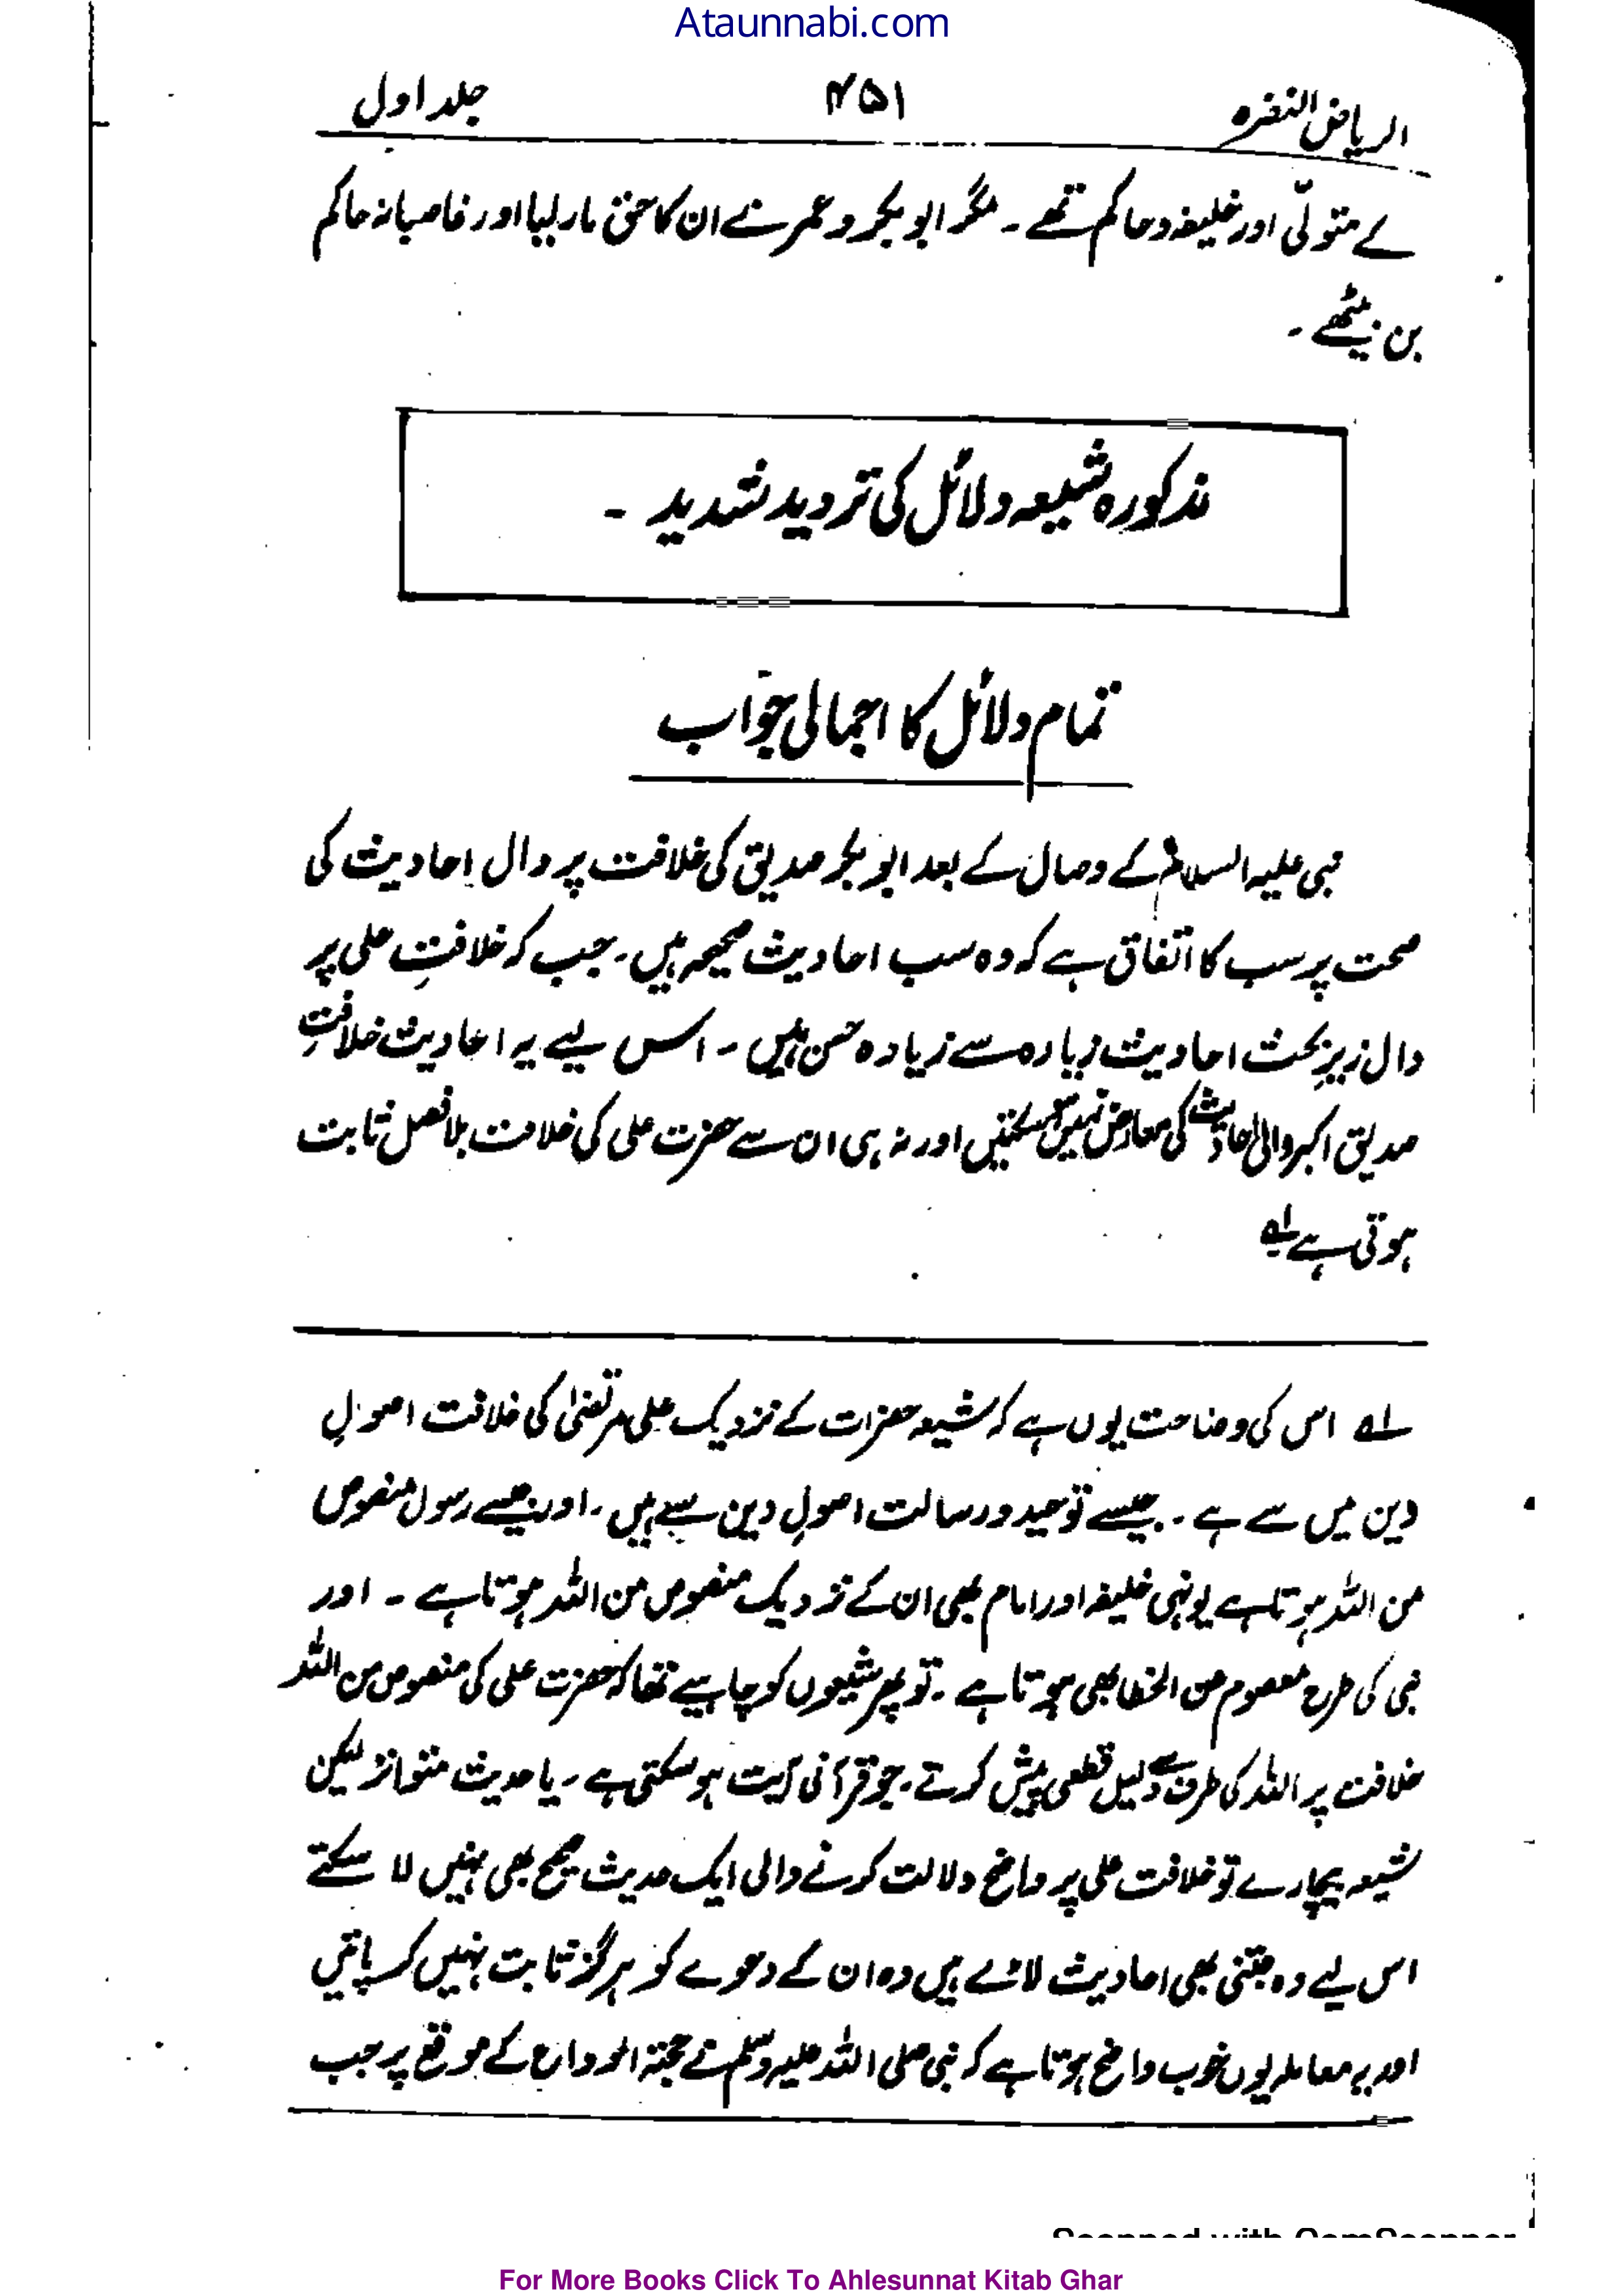 Ataunnabi.com
الریاض النضرہ ۴۵۱ جلد اول
کے متولّی اور خلیفہ و حاکم تھے ۔ مگر ابو بکر و عمر نے ان کا حق مار لیا اور غاصبانہ حاکم
بن بیٹھے ۔
مذکورہ شیعہ دلائل کی تردید شدید ۔
تمام دلائل کا اجمالی جواب
نبی علیہ السلام کے وصال کے بعد ابو بکر صدیق کی خلافت پر دال احادیث کی
صحت پر سب کا اتفاق ہے کہ وہ سب احادیث صحیحہ ہیں ۔ جب کہ خلافتِ علی پر
دال زیرِ بحث احادیث زیادہ سے زیادہ حسن ہیں ۔ اس لیے یہ احادیث خلافتِ
صدیق اکبر والی احادیث کی معارض نہیں ہو سکتیں اور نہ ہی ان سے حضرت علی کی خلافت بلا فصل ثابت
ہوتی ہے لے
لے اس کی وضاحت یوں ہے کہ شیعہ حضرات کے نزدیک علی مرتضیٰ کی خلافت اصولِ
دین میں سے ہے ۔ جیسے توحید و رسالت اصولِ دین سے ہیں ۔ اور جیسے رسول منصوص
من اللہ ہوتا ہے یونہی خلیفہ اور امام بھی ان کے نزدیک منصوص من اللہ ہوتا ہے ۔ اور
نبی کی طرح معصوم عن الخطا بھی ہوتا ہے ۔ تو پھر شیعوں کو چاہیے تھا کہ حضرت علی کی منصوص من اللہ
خلافت پر اللہ کی طرف سے دلیل قطعی پیش کرتے ۔ جو قرآنی آیت ہو سکتی ہے ۔ یا حدیث متواتر لیکن
شیعہ بیچارے تو خلافت علی پر واضح دلالت کرنے والی ایک حدیث صحیح بھی نہیں لا سکتے
اس لیے وہ جتنی بھی احادیث لائے ہیں وہ ان کے دعوے کو ہرگز ثابت نہیں کر پاتیں
اور یہ معاملہ یوں خوب واضح ہوتا ہے کہ نبی صلی اللہ علیہ وسلم نے حجۃ الوداع کے موقع پر جب
Scanned with CamScanner
For More Books Click To Ahlesunnat Kitab Ghar